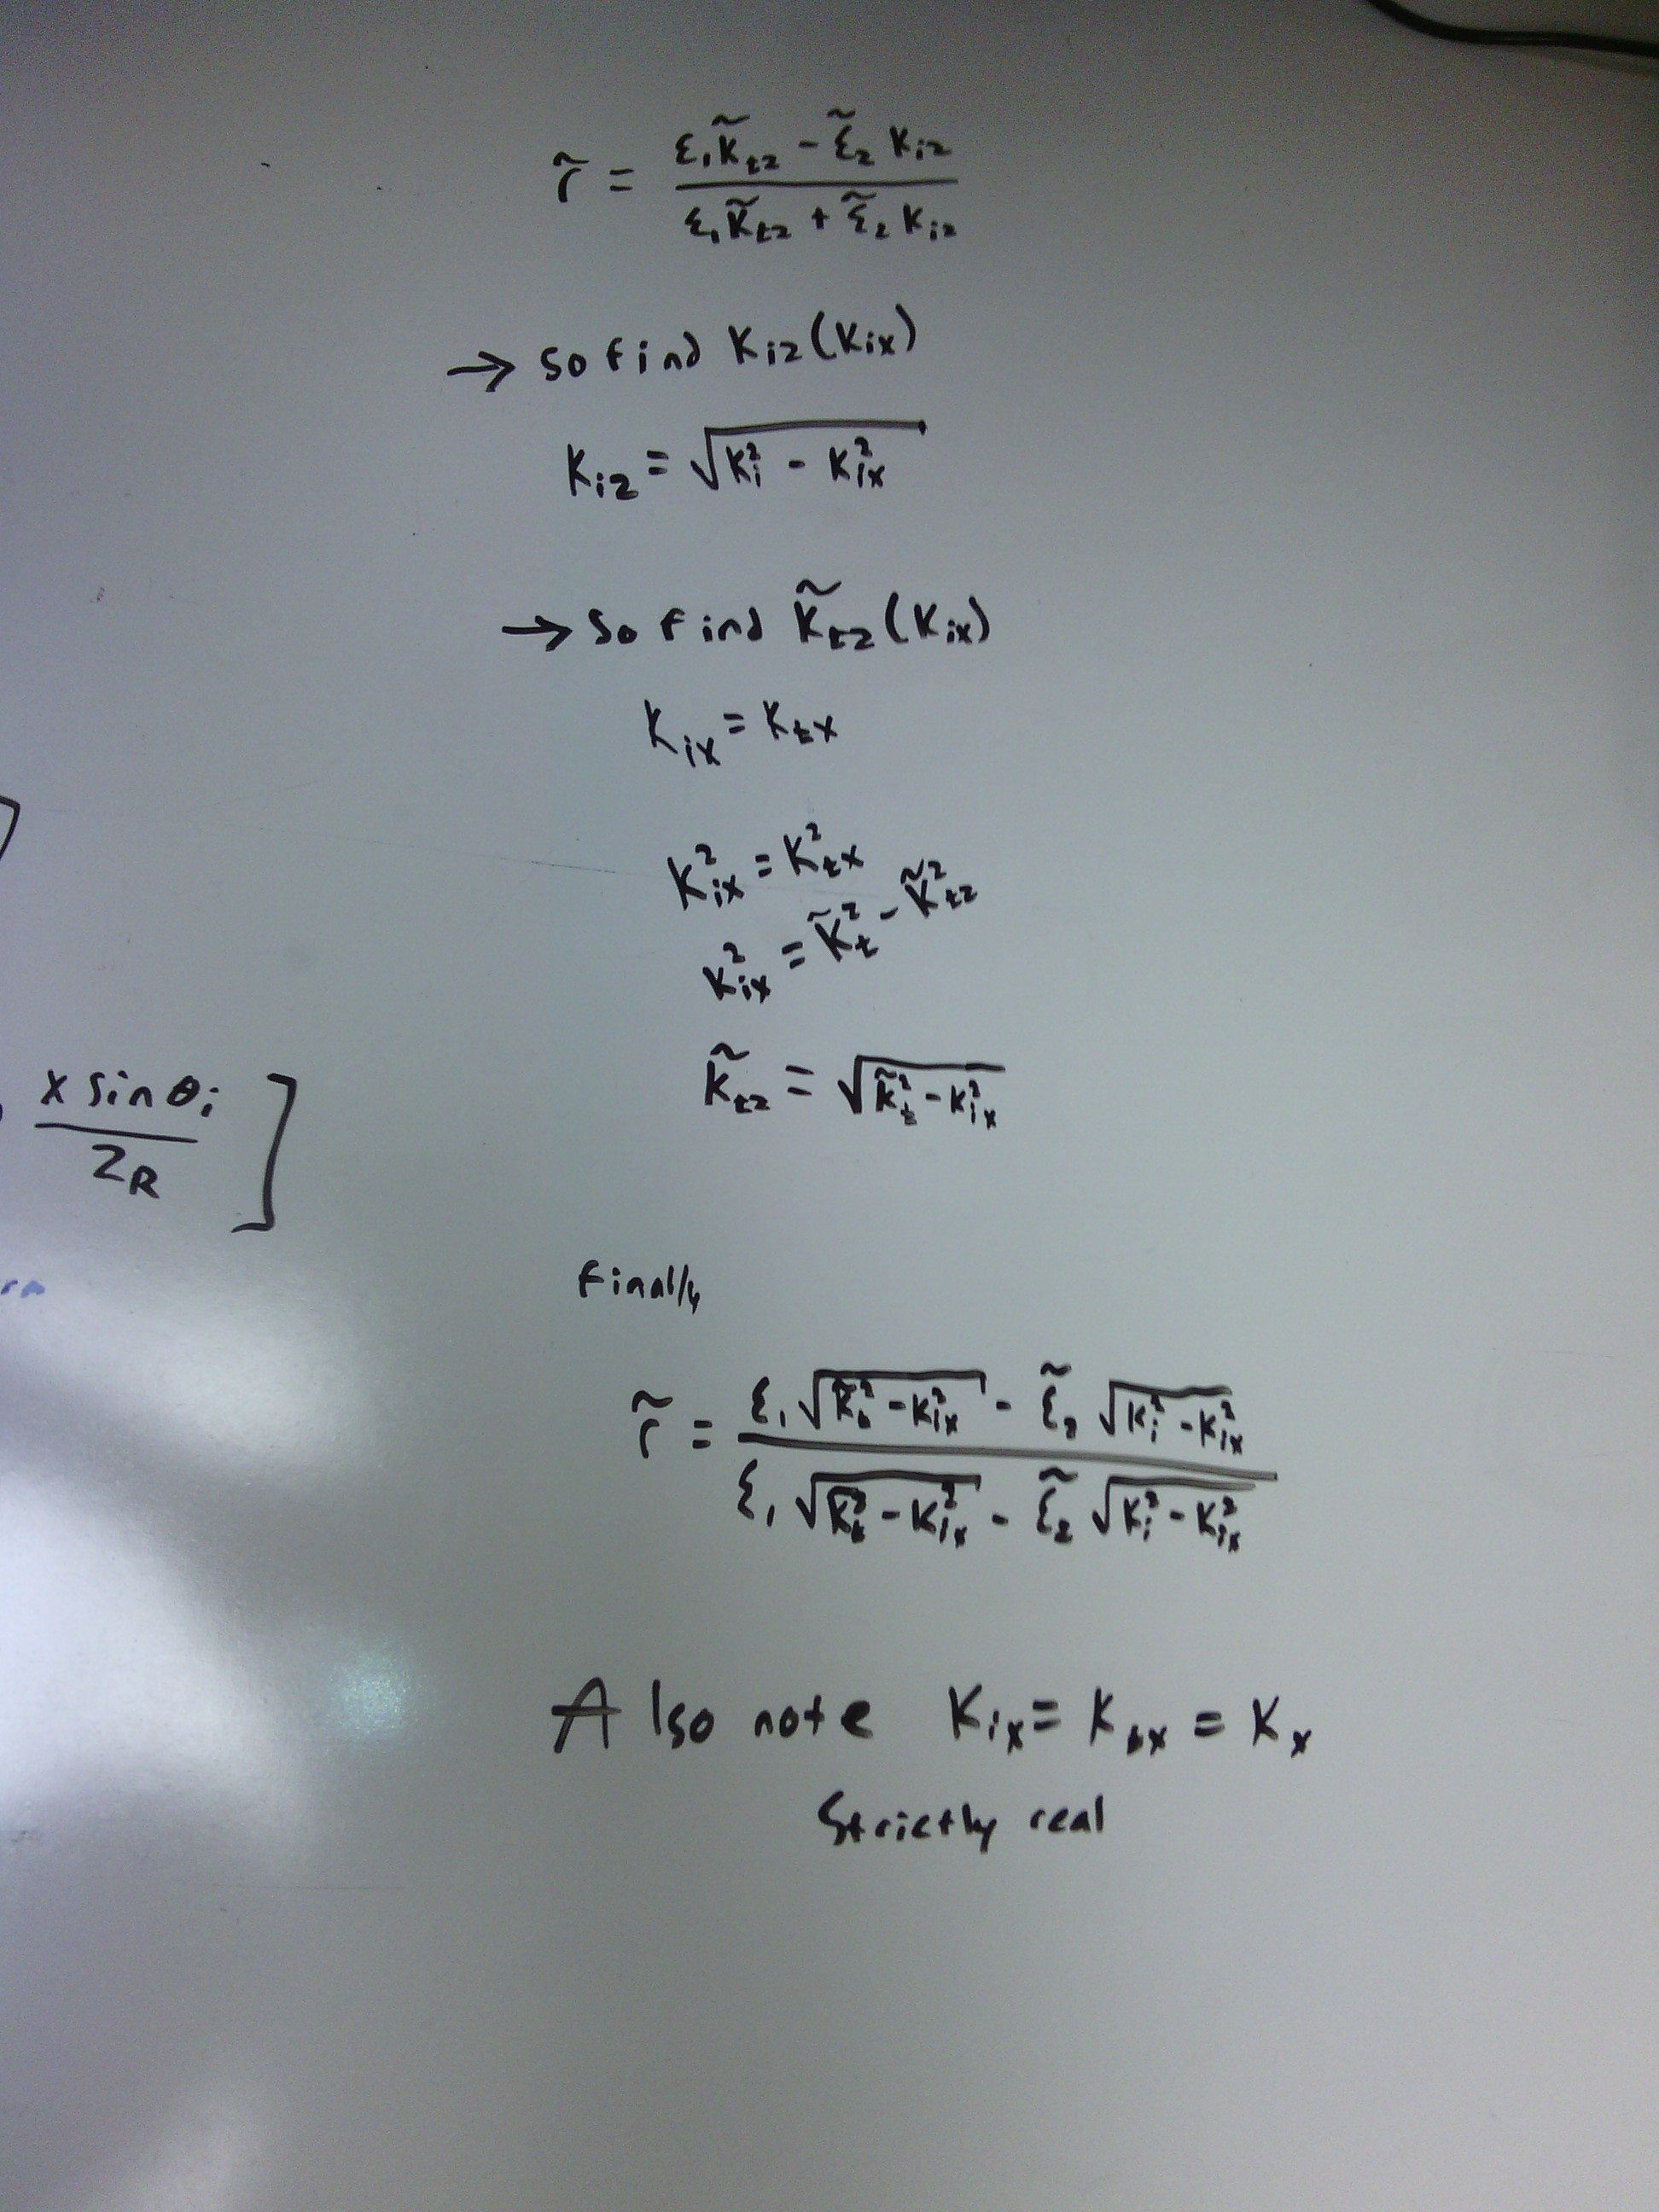 r̃ = (ε₁k̃tz - ε̃₂ kiz) / (ε₁k̃tz + ε̃₂ kiz)
→ So find kiz(kix)
kiz = √(ki² - kix²)
→ So find k̃tz(kix)
kix = ktx
kix² = ktx²
kix² = k̃t² - k̃tz²
k̃tz = √(k̃t² - kix²)
x sin θi / zR ]
Finally
r̃ = (ε₁ √(k̃t² - kix²) - ε̃₂ √(ki² - kix²)) / (ε₁ √(k̃t² - kix²) - ε̃₂ √(ki² - kix²))
Also note kix = ktx = kx
Strictly real